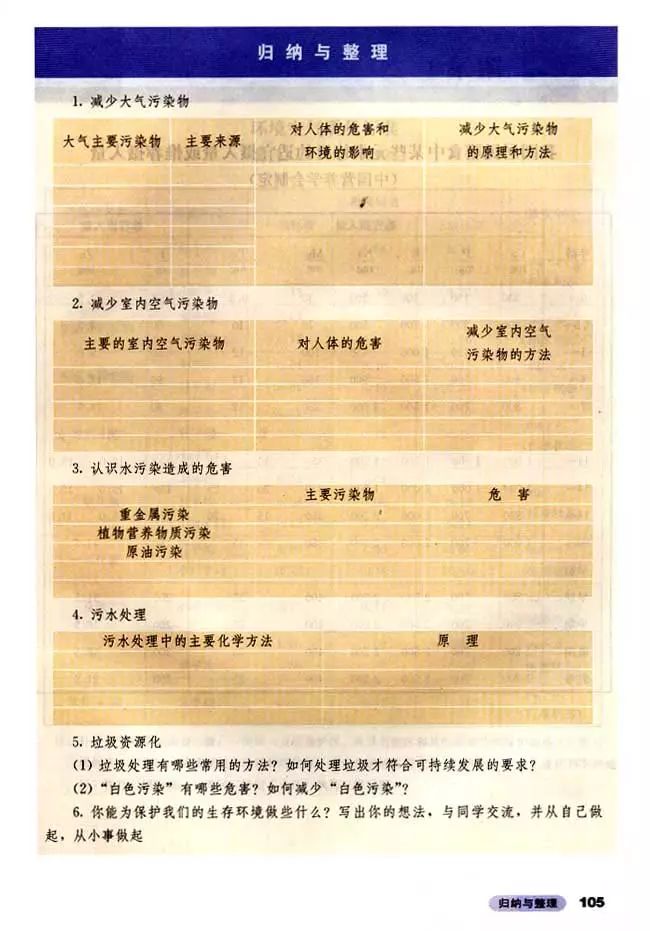 归纳与整理
1. 减少大气污染物
大气主要污染物 主要来源 对人体的危害和环境的影响 减少大气污染物的原理和方法
2. 减少室内空气污染物
主要的室内空气污染物 对人体的危害 减少室内空气污染物的方法
3. 认识水污染造成的危害
主要污染物 危 害
重金属污染
植物营养物质污染
原油污染
4. 污水处理
污水处理中的主要化学方法 原 理
5. 垃圾资源化
(1) 垃圾处理有哪些常用的方法？如何处理垃圾才符合可持续发展的要求？
(2) “白色污染”有哪些危害？如何减少“白色污染”？
6. 你能为保护我们的生存环境做些什么？写出你的想法，与同学交流，并从自己做
起，从小事做起
归纳与整理 105